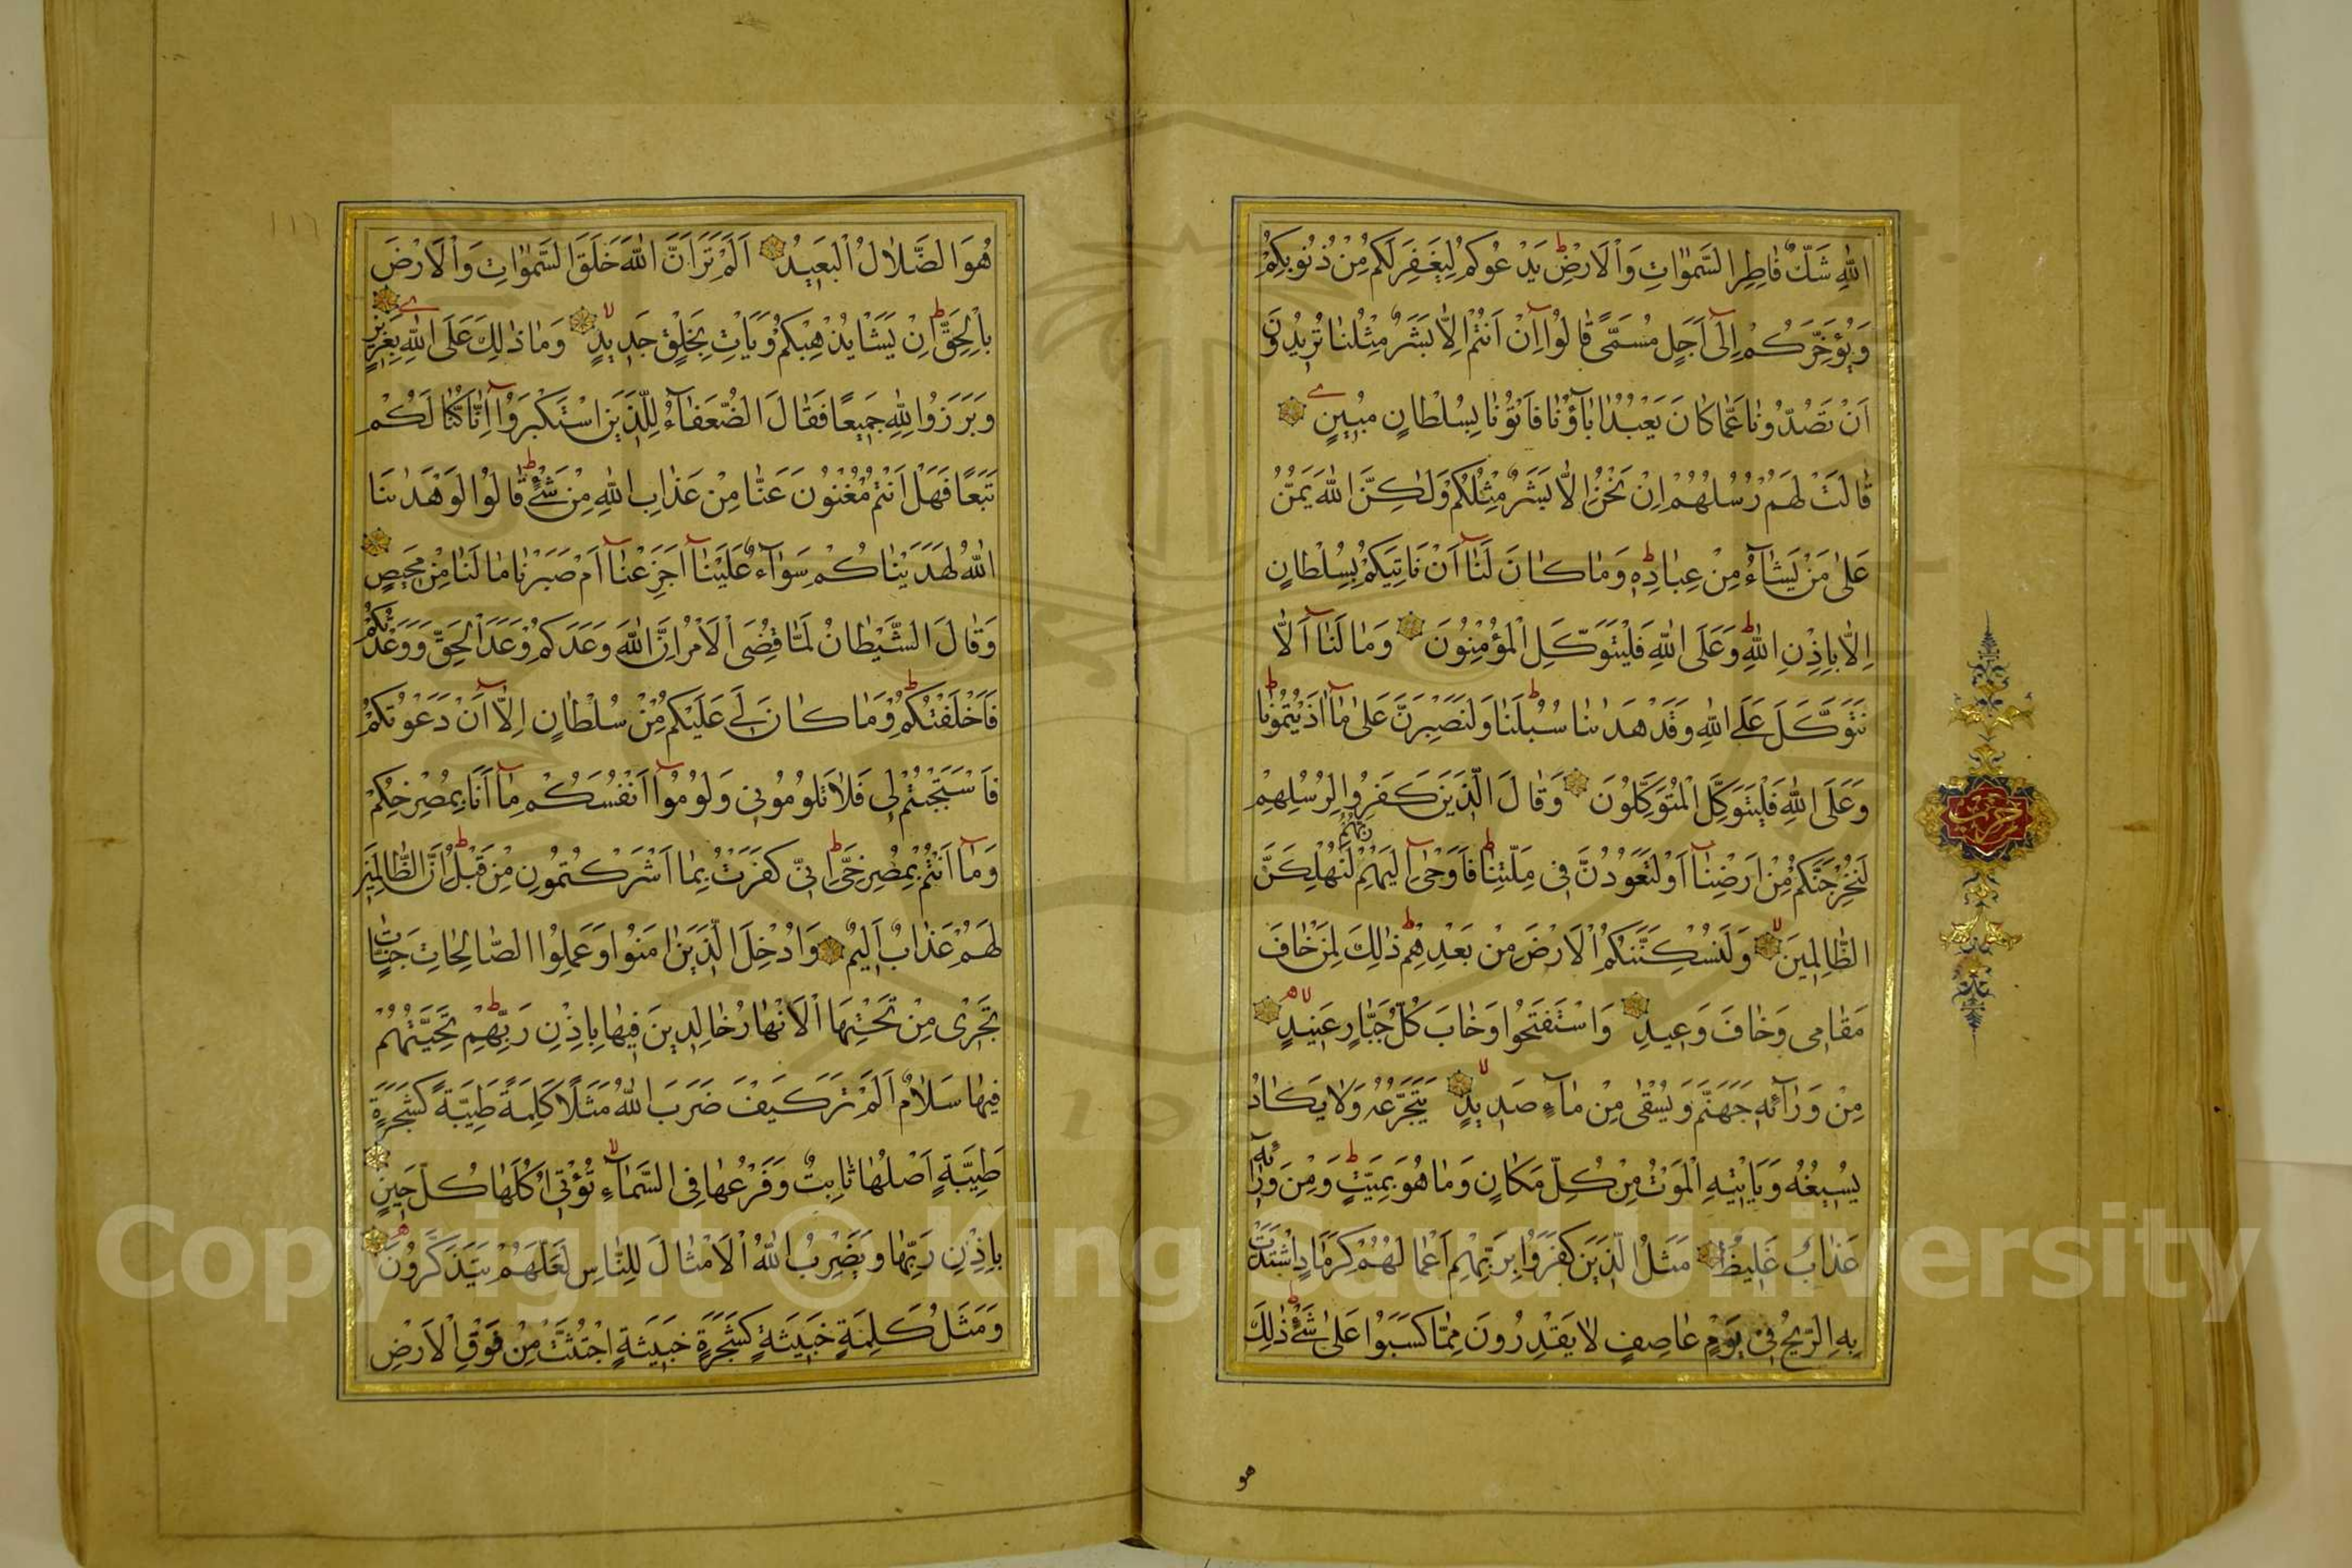 اللهِ شَكٌّ فَاطِرِ السَّمٰوَاتِ وَالْاَرْضِ يَدْعُوكُمْ لِيَغْفِرَ لَكُمْ مِنْ ذُنُوبِكُمْ
وَيُؤَخِّرَكُمْ اِلٰٓى اَجَلٍ مُسَمًّى قَالُوا اِنْ اَنْتُمْ اِلَّا بَشَرٌ مِثْلُنَا تُرِيدُونَ
اَنْ تَصُدُّونَا عَمَّا كَانَ يَعْبُدُ اٰبَاؤُنَا فَأْتُونَا بِسُلْطَانٍ مُبِينٍ
قَالَتْ لَهُمْ رُسُلُهُمْ اِنْ نَحْنُ اِلَّا بَشَرٌ مِثْلُكُمْ وَلٰكِنَّ اللهَ يَمُنُّ
عَلٰى مَنْ يَشَاءُ مِنْ عِبَادِهِ وَمَا كَانَ لَنَا اَنْ نَأْتِيَكُمْ بِسُلْطَانٍ
اِلَّا بِاِذْنِ اللهِ وَعَلَى اللهِ فَلْيَتَوَكَّلِ الْمُؤْمِنُونَ وَمَا لَنَا اَلَّا
نَتَوَكَّلَ عَلَى اللهِ وَقَدْ هَدٰينَا سُبُلَنَا وَلَنَصْبِرَنَّ عَلٰى مَا اٰذَيْتُمُونَا
وَعَلَى اللهِ فَلْيَتَوَكَّلِ الْمُتَوَكِّلُونَ وَقَالَ الَّذِينَ كَفَرُوا لِرُسُلِهِمْ
لَنُخْرِجَنَّكُمْ مِنْ اَرْضِنَا اَوْ لَتَعُودُنَّ فِي مِلَّتِنَا فَاَوْحٰى اِلَيْهِمْ رَبُّهُمْ لَنُهْلِكَنَّ
الظَّالِمِينَ وَلَنُسْكِنَنَّكُمُ الْاَرْضَ مِنْ بَعْدِهِمْ ذٰلِكَ لِمَنْ خَافَ
مَقَامِي وَخَافَ وَعِيدِ وَاسْتَفْتَحُوا وَخَابَ كُلُّ جَبَّارٍ عَنِيدٍ
مِنْ وَرَائِهِ جَهَنَّمُ وَيُسْقٰى مِنْ مَاءٍ صَدِيدٍ يَتَجَرَّعُهُ وَلَا يَكَادُ
يُسِيغُهُ وَيَأْتِيهِ الْمَوْتُ مِنْ كُلِّ مَكَانٍ وَمَا هُوَ بِمَيِّتٍ وَمِنْ وَرَائِهِ
عَذَابٌ غَلِيظٌ مَثَلُ الَّذِينَ كَفَرُوا بِرَبِّهِمْ اَعْمَالُهُمْ كَرَمَادٍ اشْتَدَّتْ
بِهِ الرِّيحُ فِي يَوْمٍ عَاصِفٍ لَا يَقْدِرُونَ مِمَّا كَسَبُوا عَلٰى شَيْءٍ ذٰلِكَ
هو
حزب
هُوَ الضَّلَالُ الْبَعِيدُ اَلَمْ تَرَ اَنَّ اللهَ خَلَقَ السَّمٰوَاتِ وَالْاَرْضَ
بِالْحَقِّ اِنْ يَشَأْ يُذْهِبْكُمْ وَيَأْتِ بِخَلْقٍ جَدِيدٍ وَمَا ذٰلِكَ عَلَى اللهِ بِعَزِيزٍ
وَبَرَزُوا لِلّٰهِ جَمِيعًا فَقَالَ الضُّعَفَاءُ لِلَّذِينَ اسْتَكْبَرُوا اِنَّا كُنَّا لَكُمْ
تَبَعًا فَهَلْ اَنْتُمْ مُغْنُونَ عَنَّا مِنْ عَذَابِ اللهِ مِنْ شَيْءٍ قَالُوا لَوْ هَدٰينَا
اللهُ لَهَدَيْنَاكُمْ سَوَاءٌ عَلَيْنَا اَجَزِعْنَا اَمْ صَبَرْنَا مَا لَنَا مِنْ مَحِيصٍ
وَقَالَ الشَّيْطَانُ لَمَّا قُضِيَ الْاَمْرُ اِنَّ اللهَ وَعَدَكُمْ وَعْدَ الْحَقِّ وَوَعَدْتُكُمْ
فَاَخْلَفْتُكُمْ وَمَا كَانَ لِيَ عَلَيْكُمْ مِنْ سُلْطَانٍ اِلَّا اَنْ دَعَوْتُكُمْ
فَاسْتَجَبْتُمْ لِي فَلَا تَلُومُونِي وَلُومُوا اَنْفُسَكُمْ مَا اَنَا بِمُصْرِخِكُمْ
وَمَا اَنْتُمْ بِمُصْرِخِيَّ اِنِّي كَفَرْتُ بِمَا اَشْرَكْتُمُونِ مِنْ قَبْلُ اِنَّ الظَّالِمِينَ
لَهُمْ عَذَابٌ اَلِيمٌ وَاُدْخِلَ الَّذِينَ اٰمَنُوا وَعَمِلُوا الصَّالِحَاتِ جَنَّاتٍ
تَجْرِي مِنْ تَحْتِهَا الْاَنْهَارُ خَالِدِينَ فِيهَا بِاِذْنِ رَبِّهِمْ تَحِيَّتُهُمْ
فِيهَا سَلَامٌ اَلَمْ تَرَ كَيْفَ ضَرَبَ اللهُ مَثَلًا كَلِمَةً طَيِّبَةً كَشَجَرَةٍ
طَيِّبَةٍ اَصْلُهَا ثَابِتٌ وَفَرْعُهَا فِي السَّمَاءِ تُؤْتِي اُكُلَهَا كُلَّ حِينٍ
بِاِذْنِ رَبِّهَا وَيَضْرِبُ اللهُ الْاَمْثَالَ لِلنَّاسِ لَعَلَّهُمْ يَتَذَكَّرُونَ
وَمَثَلُ كَلِمَةٍ خَبِيثَةٍ كَشَجَرَةٍ خَبِيثَةٍ اجْتُثَّتْ مِنْ فَوْقِ الْاَرْضِ
١١٦
Copyright © King Saud University